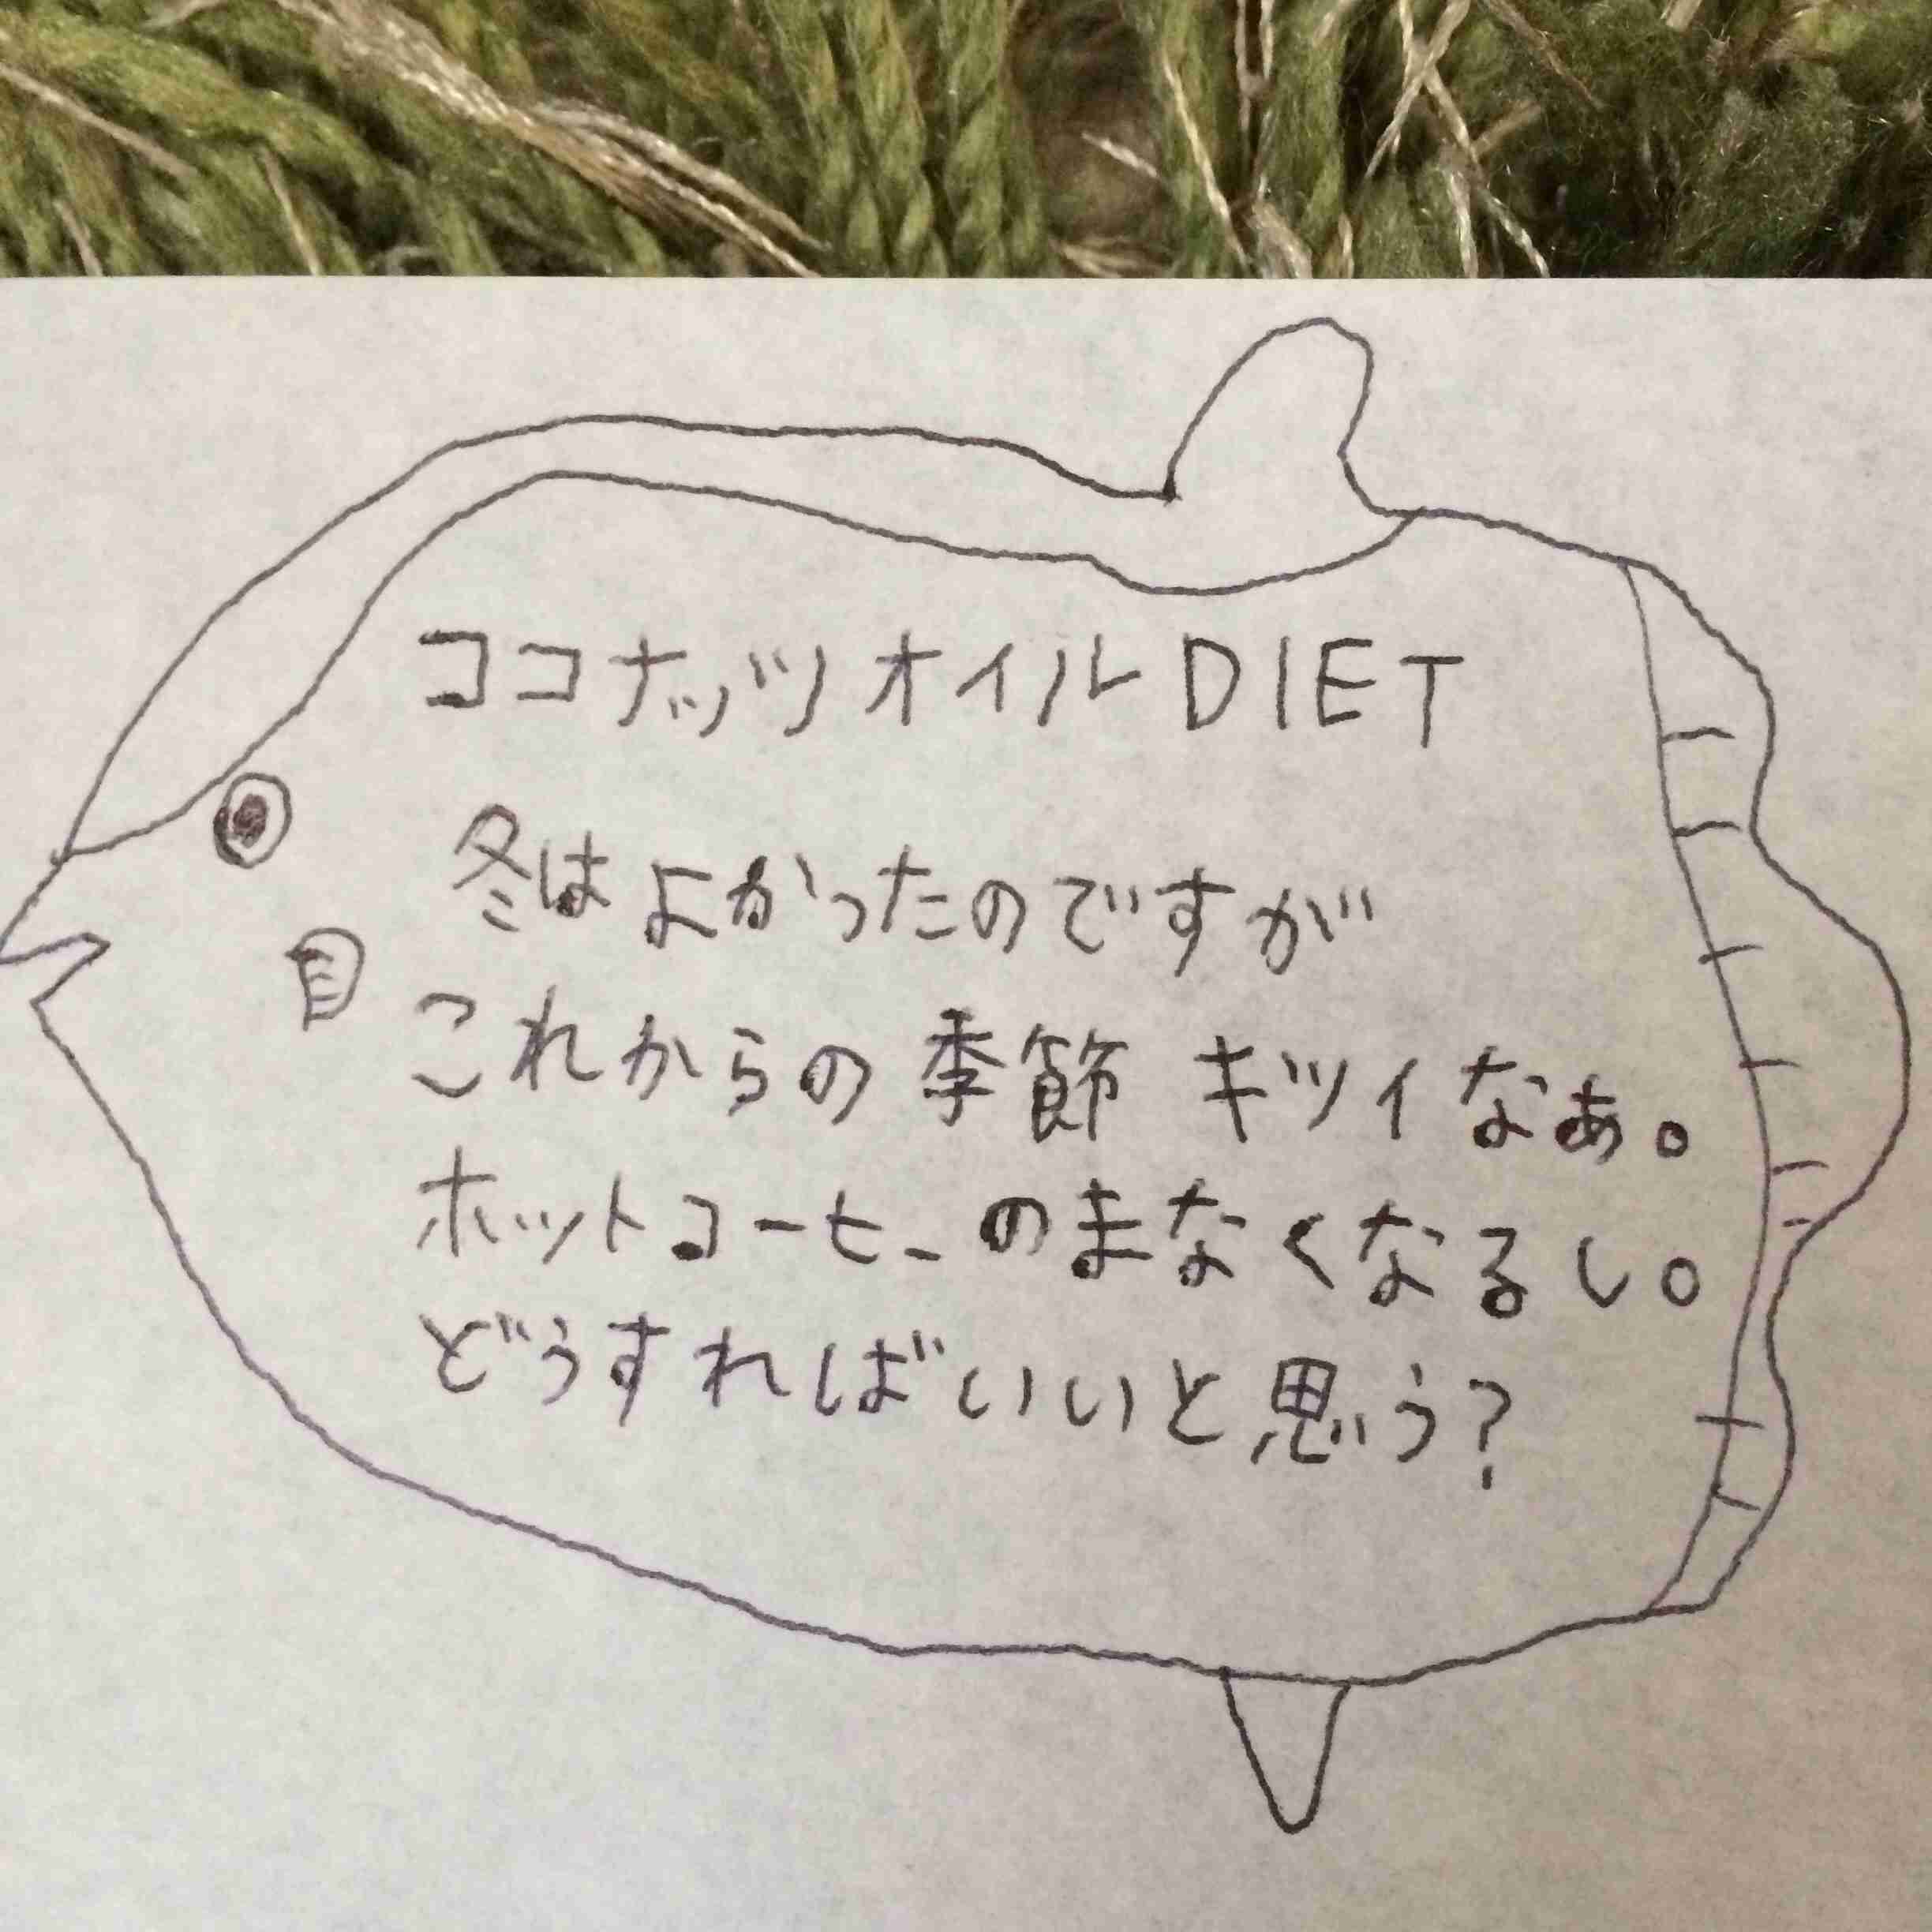 ココナッツオイルDIET
冬はよかったのですが
これからの季節キツイなぁ。
ホットコーヒーのまなくなるし。
どうすればいいと思う?